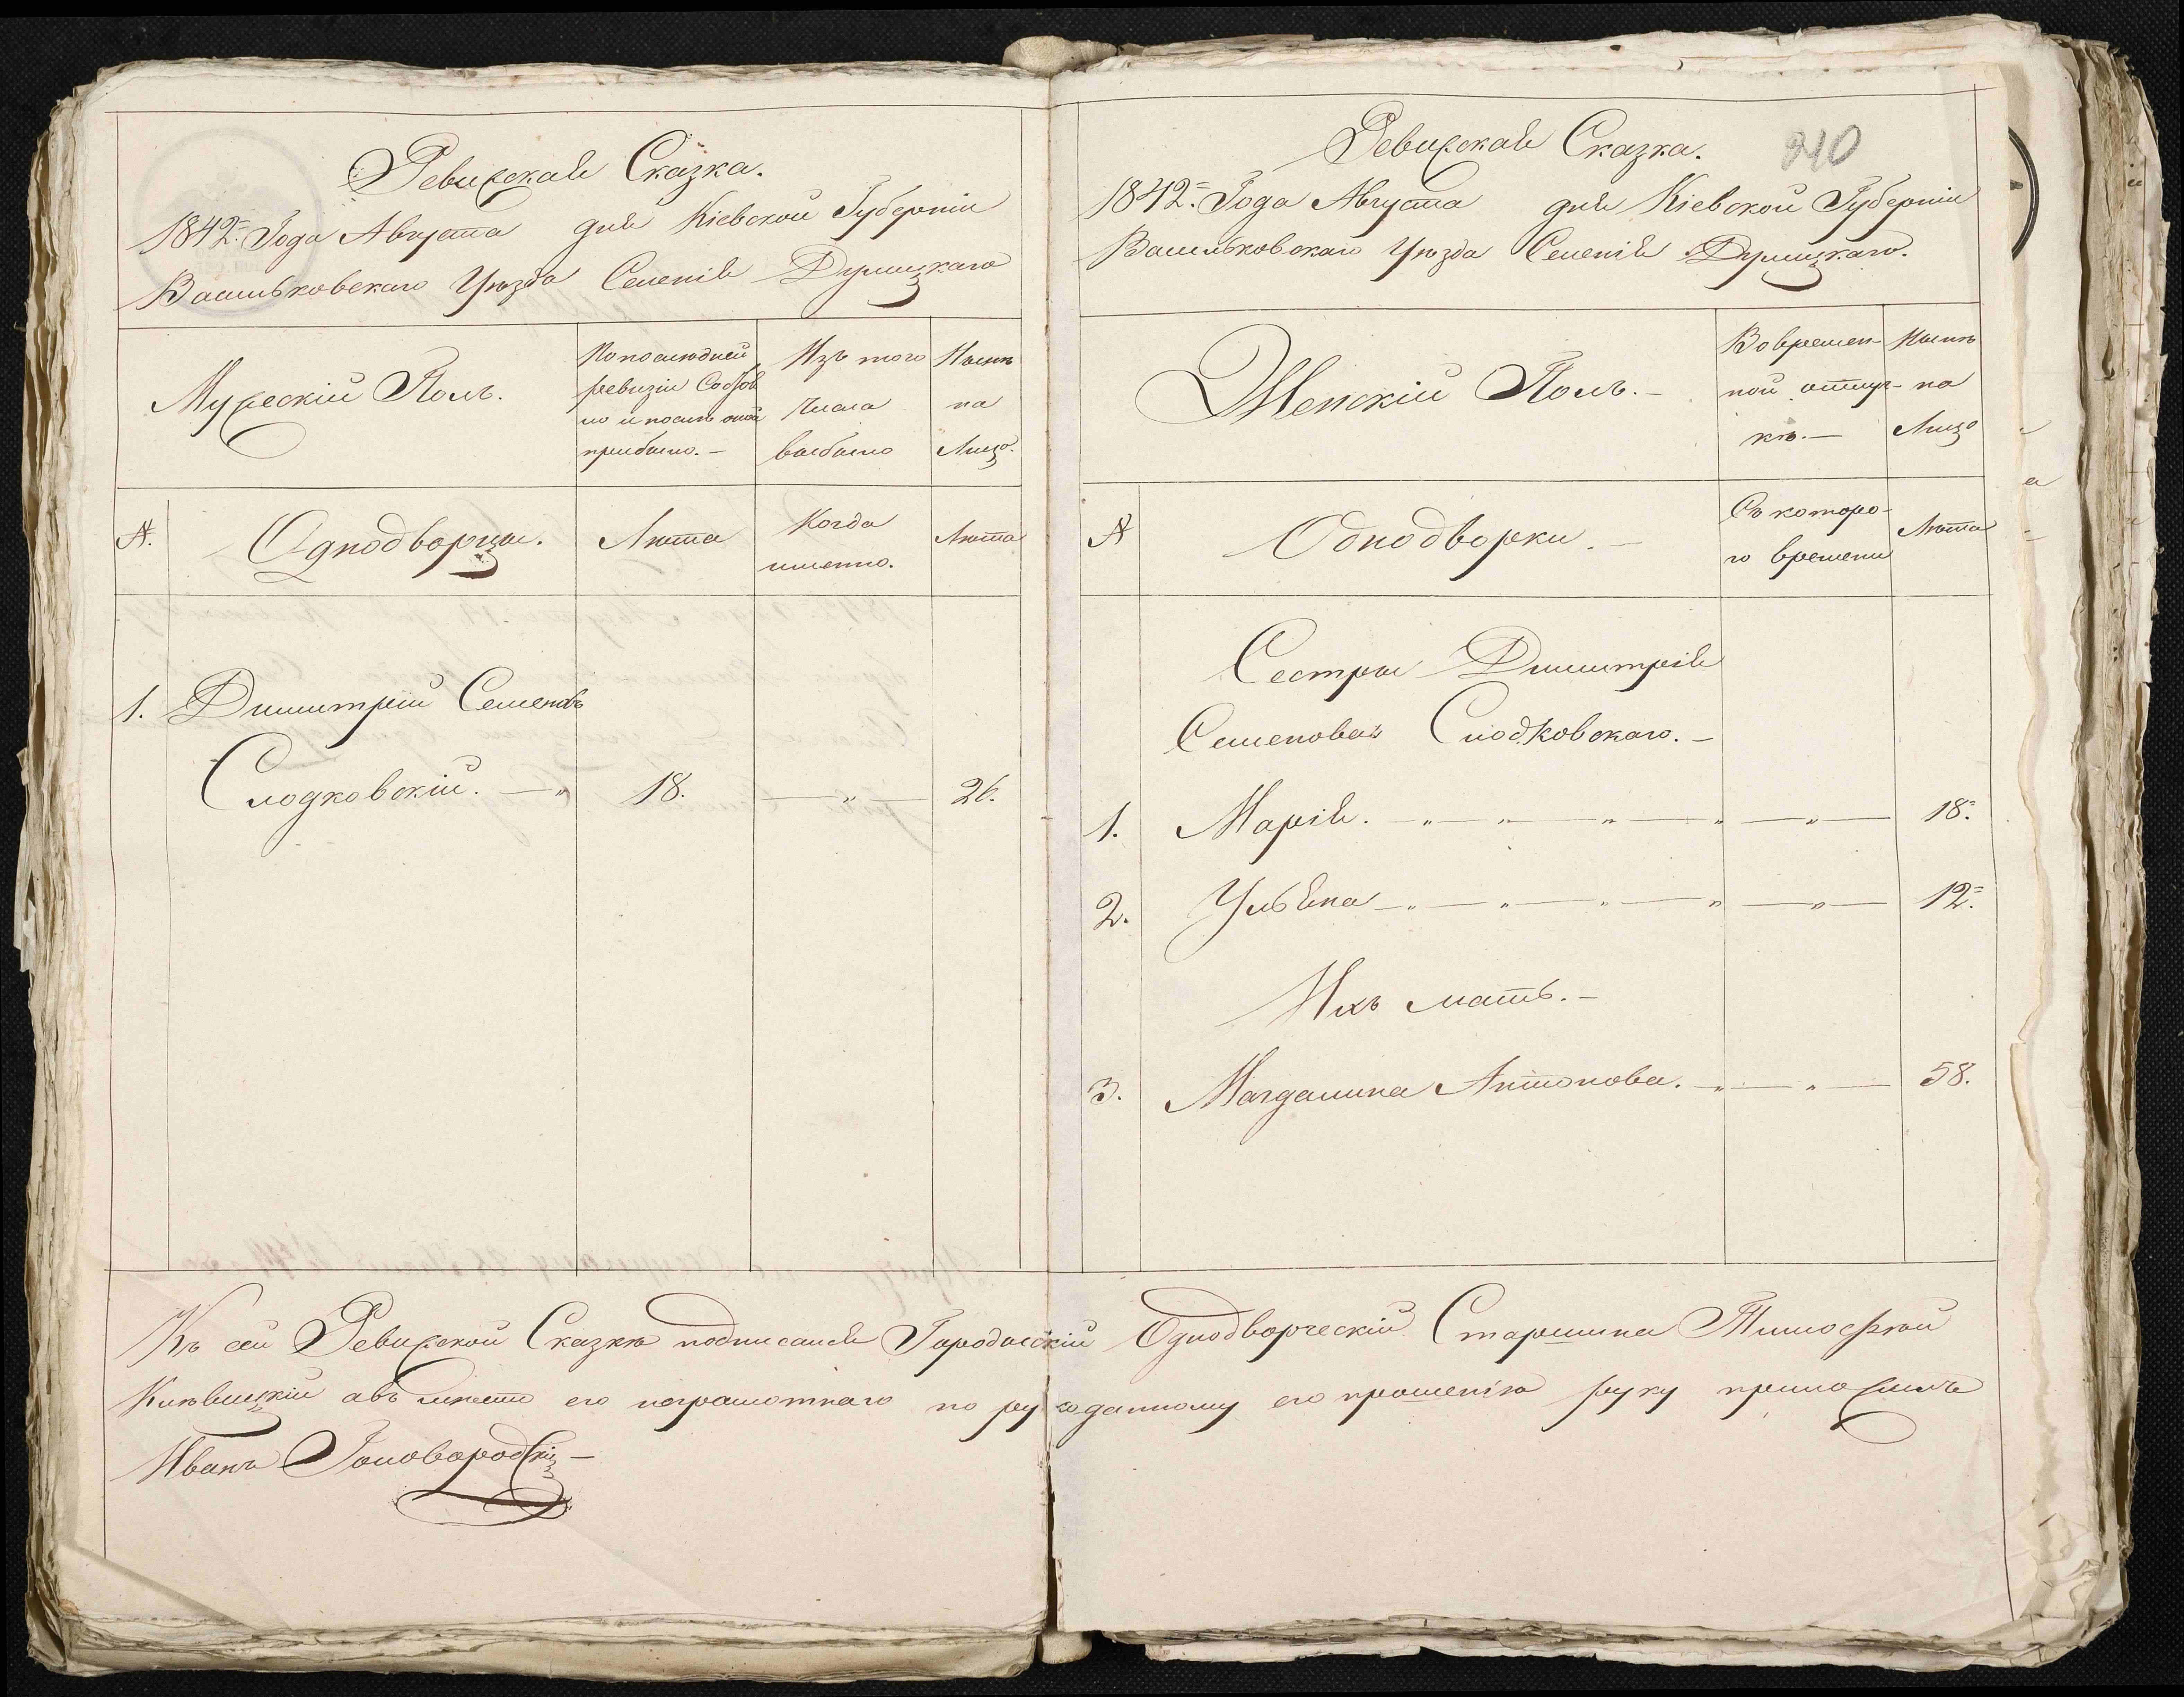 Ревизская Сказка.
1842. Года Августа дня Кіевской Губерніи
Васильковскаго Уѣзда Селенія Дулицкаго
Мужескій Полъ.
По послѣдней
ревизіи состоя
ло и послѣ оной
прибыло. —
Изъ того
числа
выбыло
Нынѣ
на
лицо.
№.
Однодворцы.
Лѣта
Когда
именно.
Лѣта
1. Димитрій Семеновъ
Слодковскій. — 18. — „ — 26.
240
Ревизская Сказка.
1842. Года Августа дня Кіевской Губерніи
Васильковскаго Уѣзда Селенія Дулицкаго.
Женскій Полъ. —
Во времен-
ной отлуч-
кѣ. —
Нынѣ
на
лицо
№
Однодворки. —
Съ которо-
го времени
Лѣта
Сестры Димитрія
Семенова Слодковскаго. —
1. Марія. — „ — „ — „ — „ — „ — 18.
2. Ульяна — „ — „ — „ — „ — „ — 12.
Ихъ мать. —
3. Магдалина Антонова. — „ — „ — 58.
Къ сей Ревизской Сказкѣ подписался Однодворческій Старшина Тимофѣй
а вмѣсто его неграмотнаго по рукоданному его прошенію руку приложилъ
Иванъ